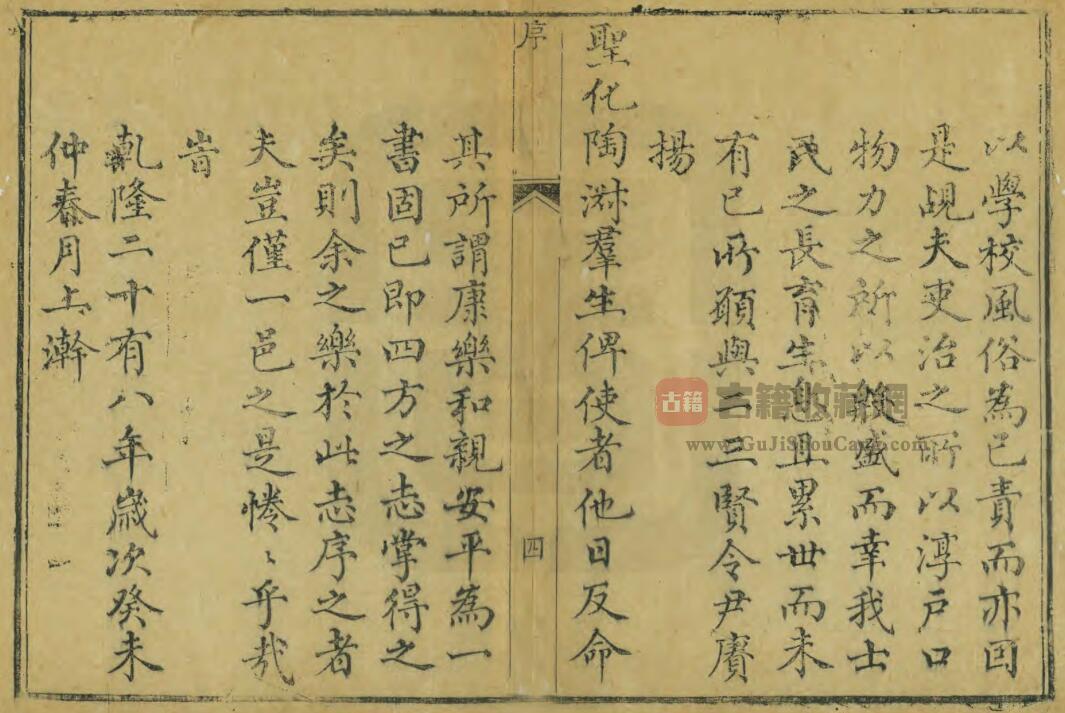 以學校風俗為已責而亦因
是覘夫吏治之所以淳戸口
物力之所以殷盛而幸我士
民之長育生息且累世而未
有已所願與二三賢令尹賡
揚
聖化陶淑羣生俾使者他日反命
序
四
其所謂康樂和親安平為一
書固已即四方之志掌得之
矣則余之樂於此志序之者
夫豈僅一邑之是惓〻乎哉
峕
乹隆二十有八年歲次癸未
仲春月上澣
古籍
古籍收藏網
www.GuJiShouCang.com